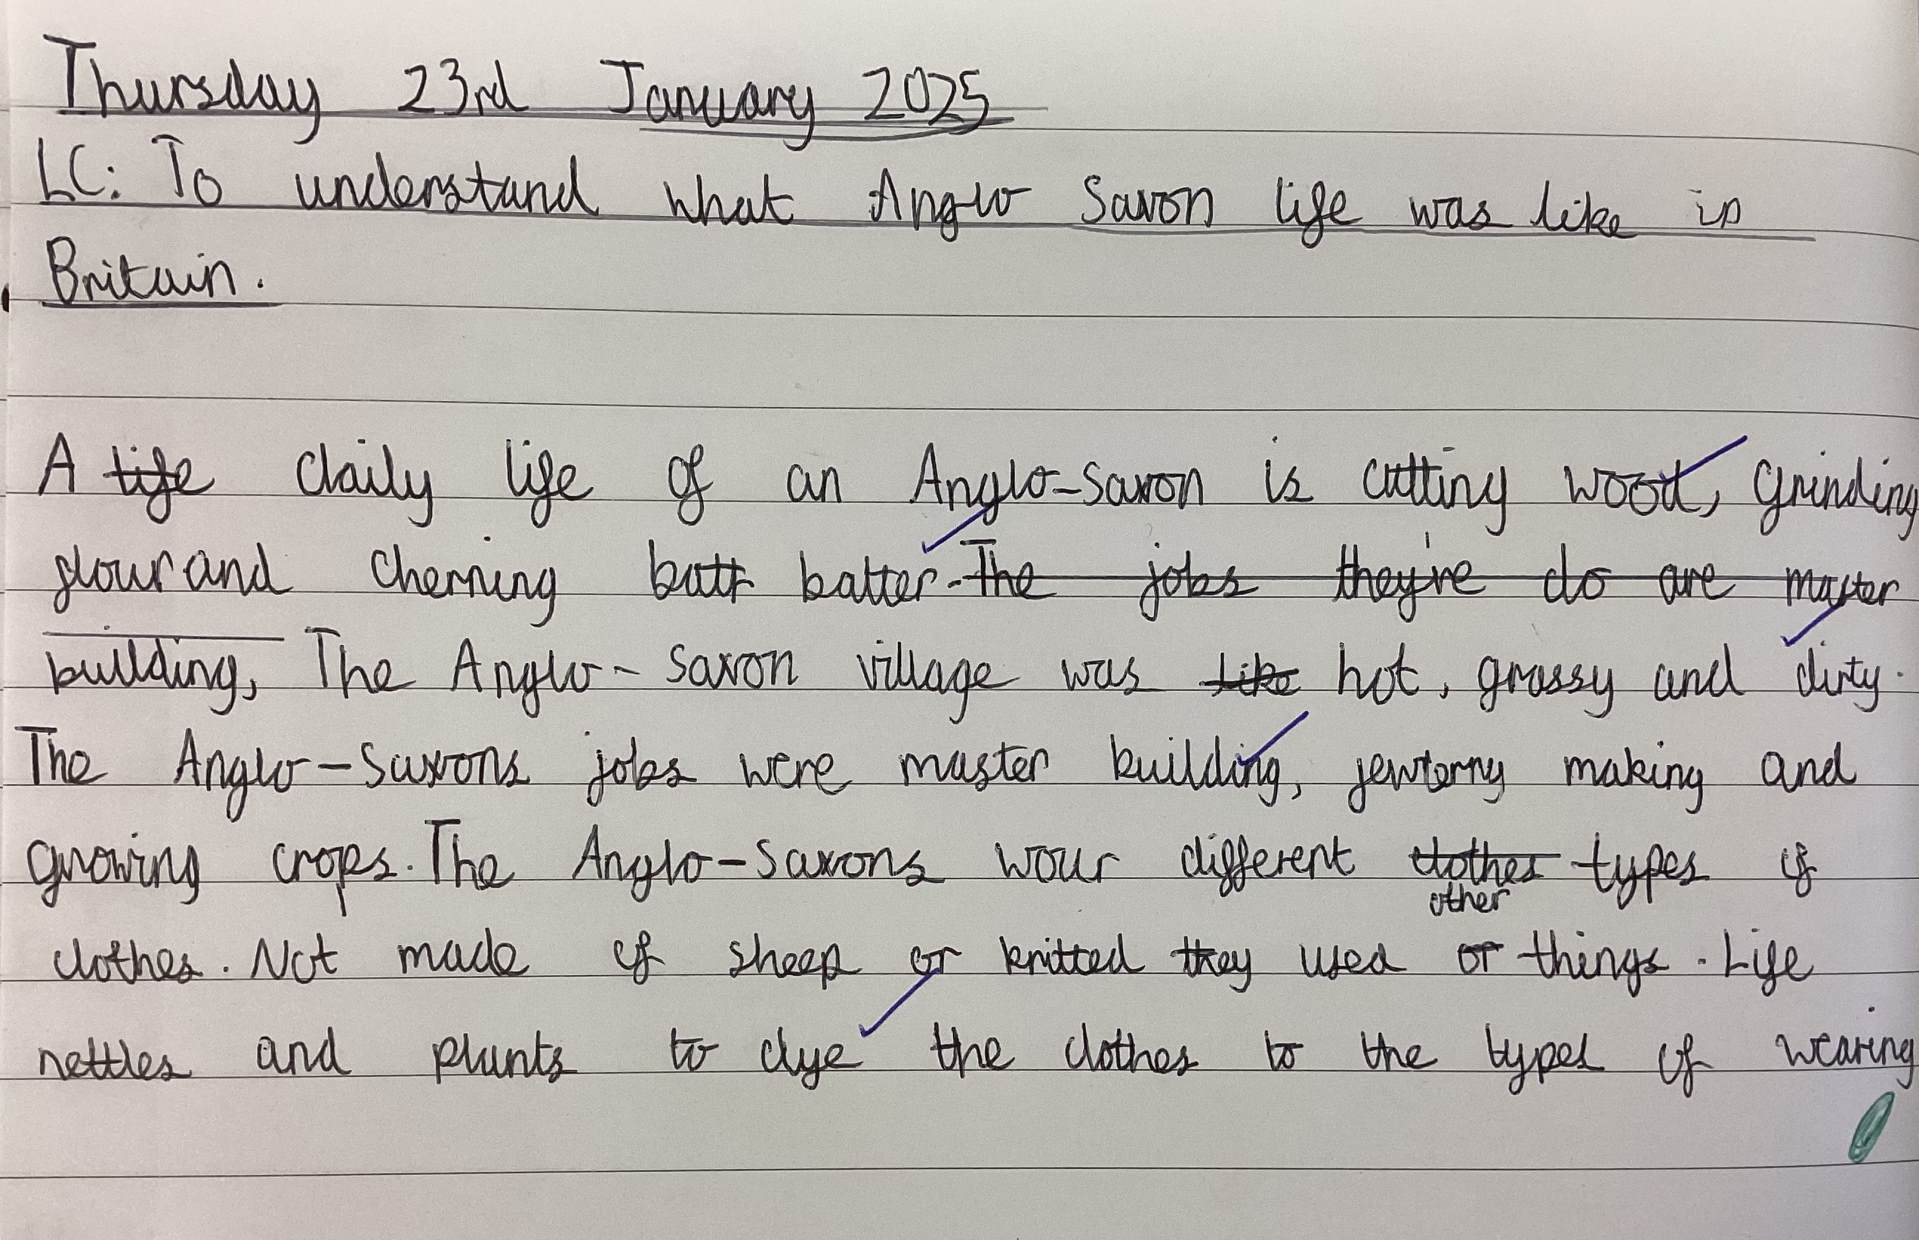 Thursday 23rd January 2025
LC: To understand what Anglo Saxon life was like in
Britain.
A life daily life of an Anglo-Saxon is cutting wood, grinding
flour and cherning butt batter. The jobs they're do are master
building, The Anglo-Saxon village was like hot, grassy and dirty.
The Anglo-Saxons jobs were master building, jewlerry making and
growing crops. The Anglo-Saxons wour different clothes types of
clothes. Not made of sheep or knitted they used or other things. Life
nettles and plants to dye the clothes to the types of wearing